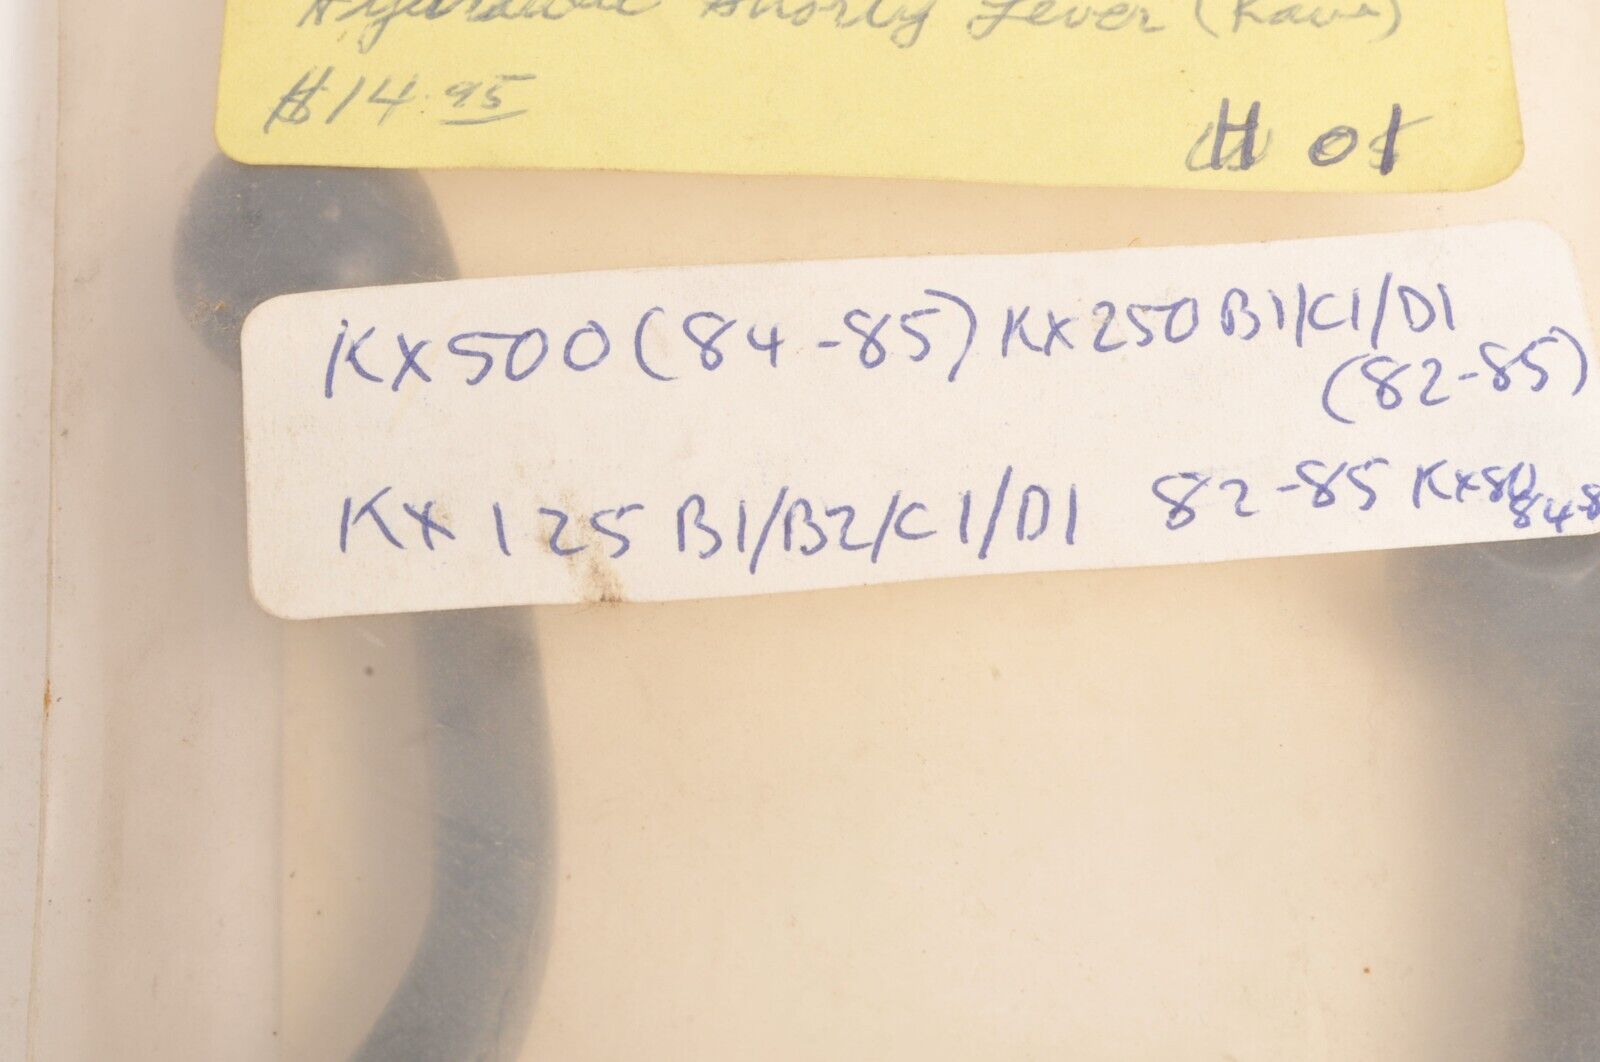 Hydraulic Shorty Lever (Kawa)
$14.95
H 01
KX500 (84-85) KX250 B1/C1/D1
(82-85)
KX 125 B1/B2/C1/D1 82-85 KX80
84-8